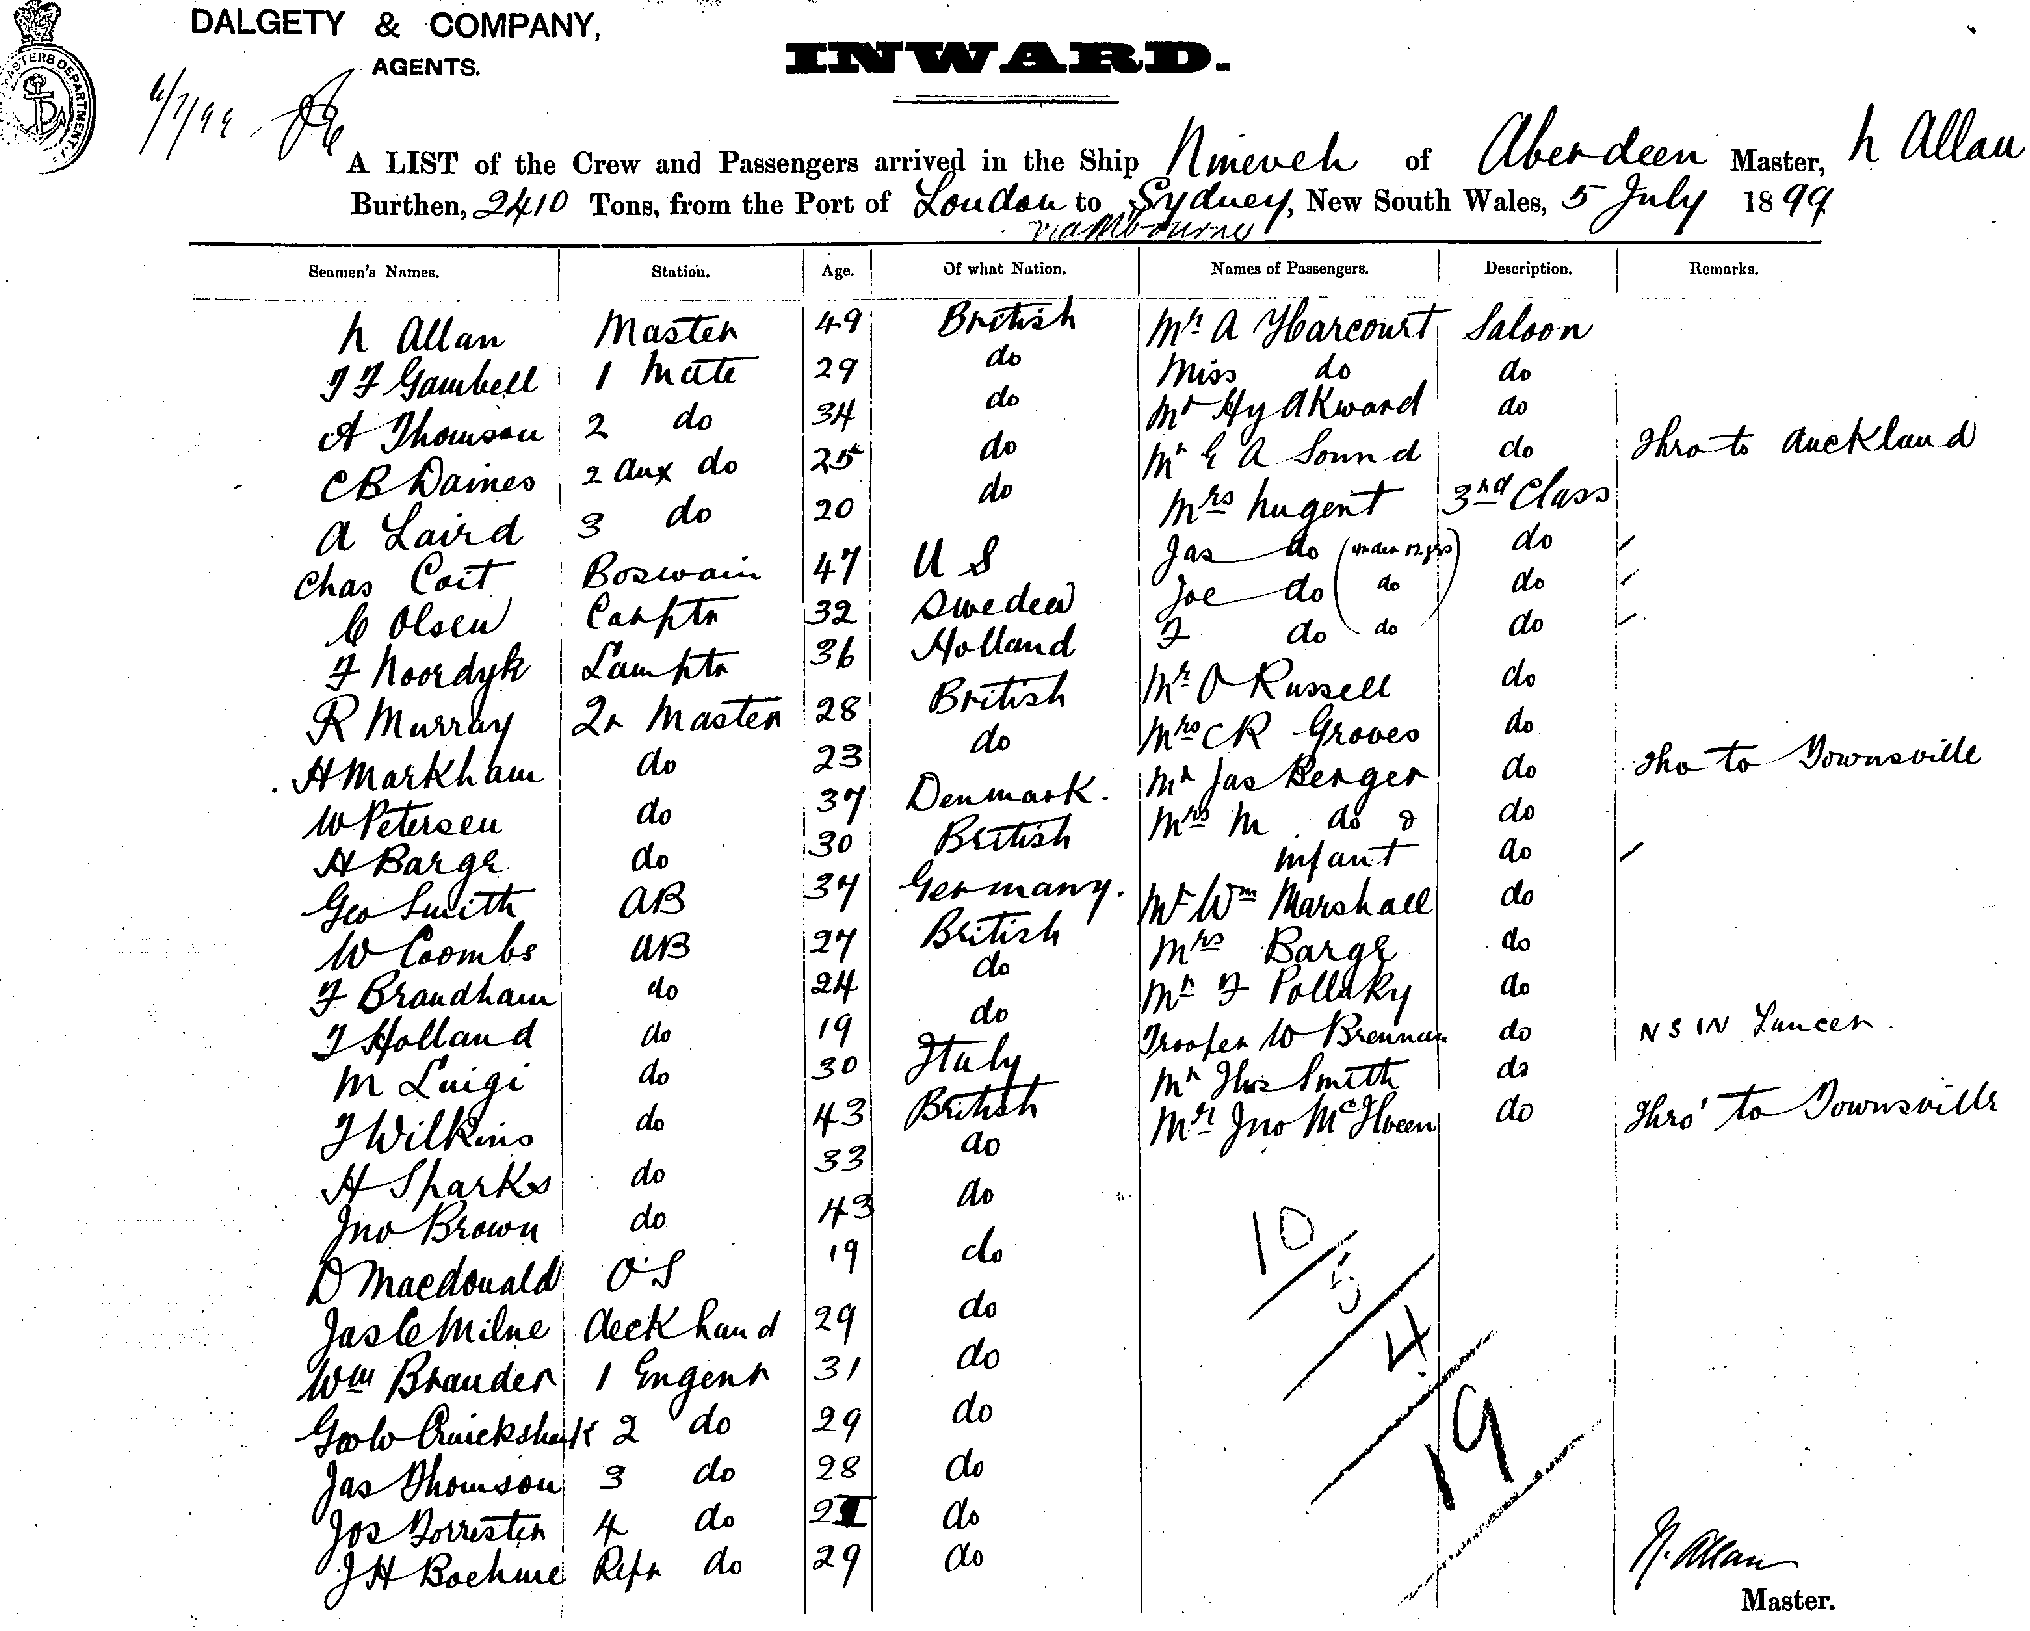 DALGETY & COMPANY,
AGENTS.
INWARD.
6/7/99
A LIST of the Crew and Passengers arrived in the Ship Nineveh of Aberdeen Master, N Allan
Burthen, 2410 Tons, from the Port of London to Sydney, New South Wales, 5 July 1899
via Mbourne
Seamen's Names. Station. Age. Of what Nation. Names of Passengers. Description. Remarks.
N Allan Master 49 British Mr A Harcourt Saloon
T F Gambell 1 Mate 29 do Miss do do
A Thomson 2 do 34 do Mr Hy Akward do
C B Daines 2 Aux do 25 do Mr E A Sound do Thro to Auckland
A Laird 3 do 20 do Mrs Nugent 3rd Class
Chas Coit Boswain 47 U S Jas do (under 12 yrs) do
C Olsen Carptr 32 Sweden Joe do (do) do
F Noordyk Lamptr 36 Holland F do do do
R Murray Qr Master 28 British Mr O Russell do
H Markham do 23 do Mrs C R Groves do
W Petersen do 37 Denmark. Mr Jas Berger do Tho to Townsville
H Barge do 30 British Mrs M do & do
Geo Smith AB 37 Germany. infant do
W Coombs AB 27 British Mr Wm Marshall do
F Brandham do 24 do Mrs Barge do
T Holland do 19 do Mr F Pollaky do
M Luigi do 30 Italy Trooper W Brennan do NSW Lancer.
T Wilkins do 43 British Mr Thos Smith do
H Sparks do 33 do Mr Jno do Thro' to Townsville
Jno Brown do 43 do
D Macdonald OS 19 do
Jas C Milne deck hand 29 do
Wm Brander 1 Engenr 31 do
Geo W Cruickshank 2 do 29 do
Jas Thomson 3 do 28 do
Jos Forrester 4 do do
J H Boehme Refr do 29 do
10
5
4
19
N. Allan
Master.